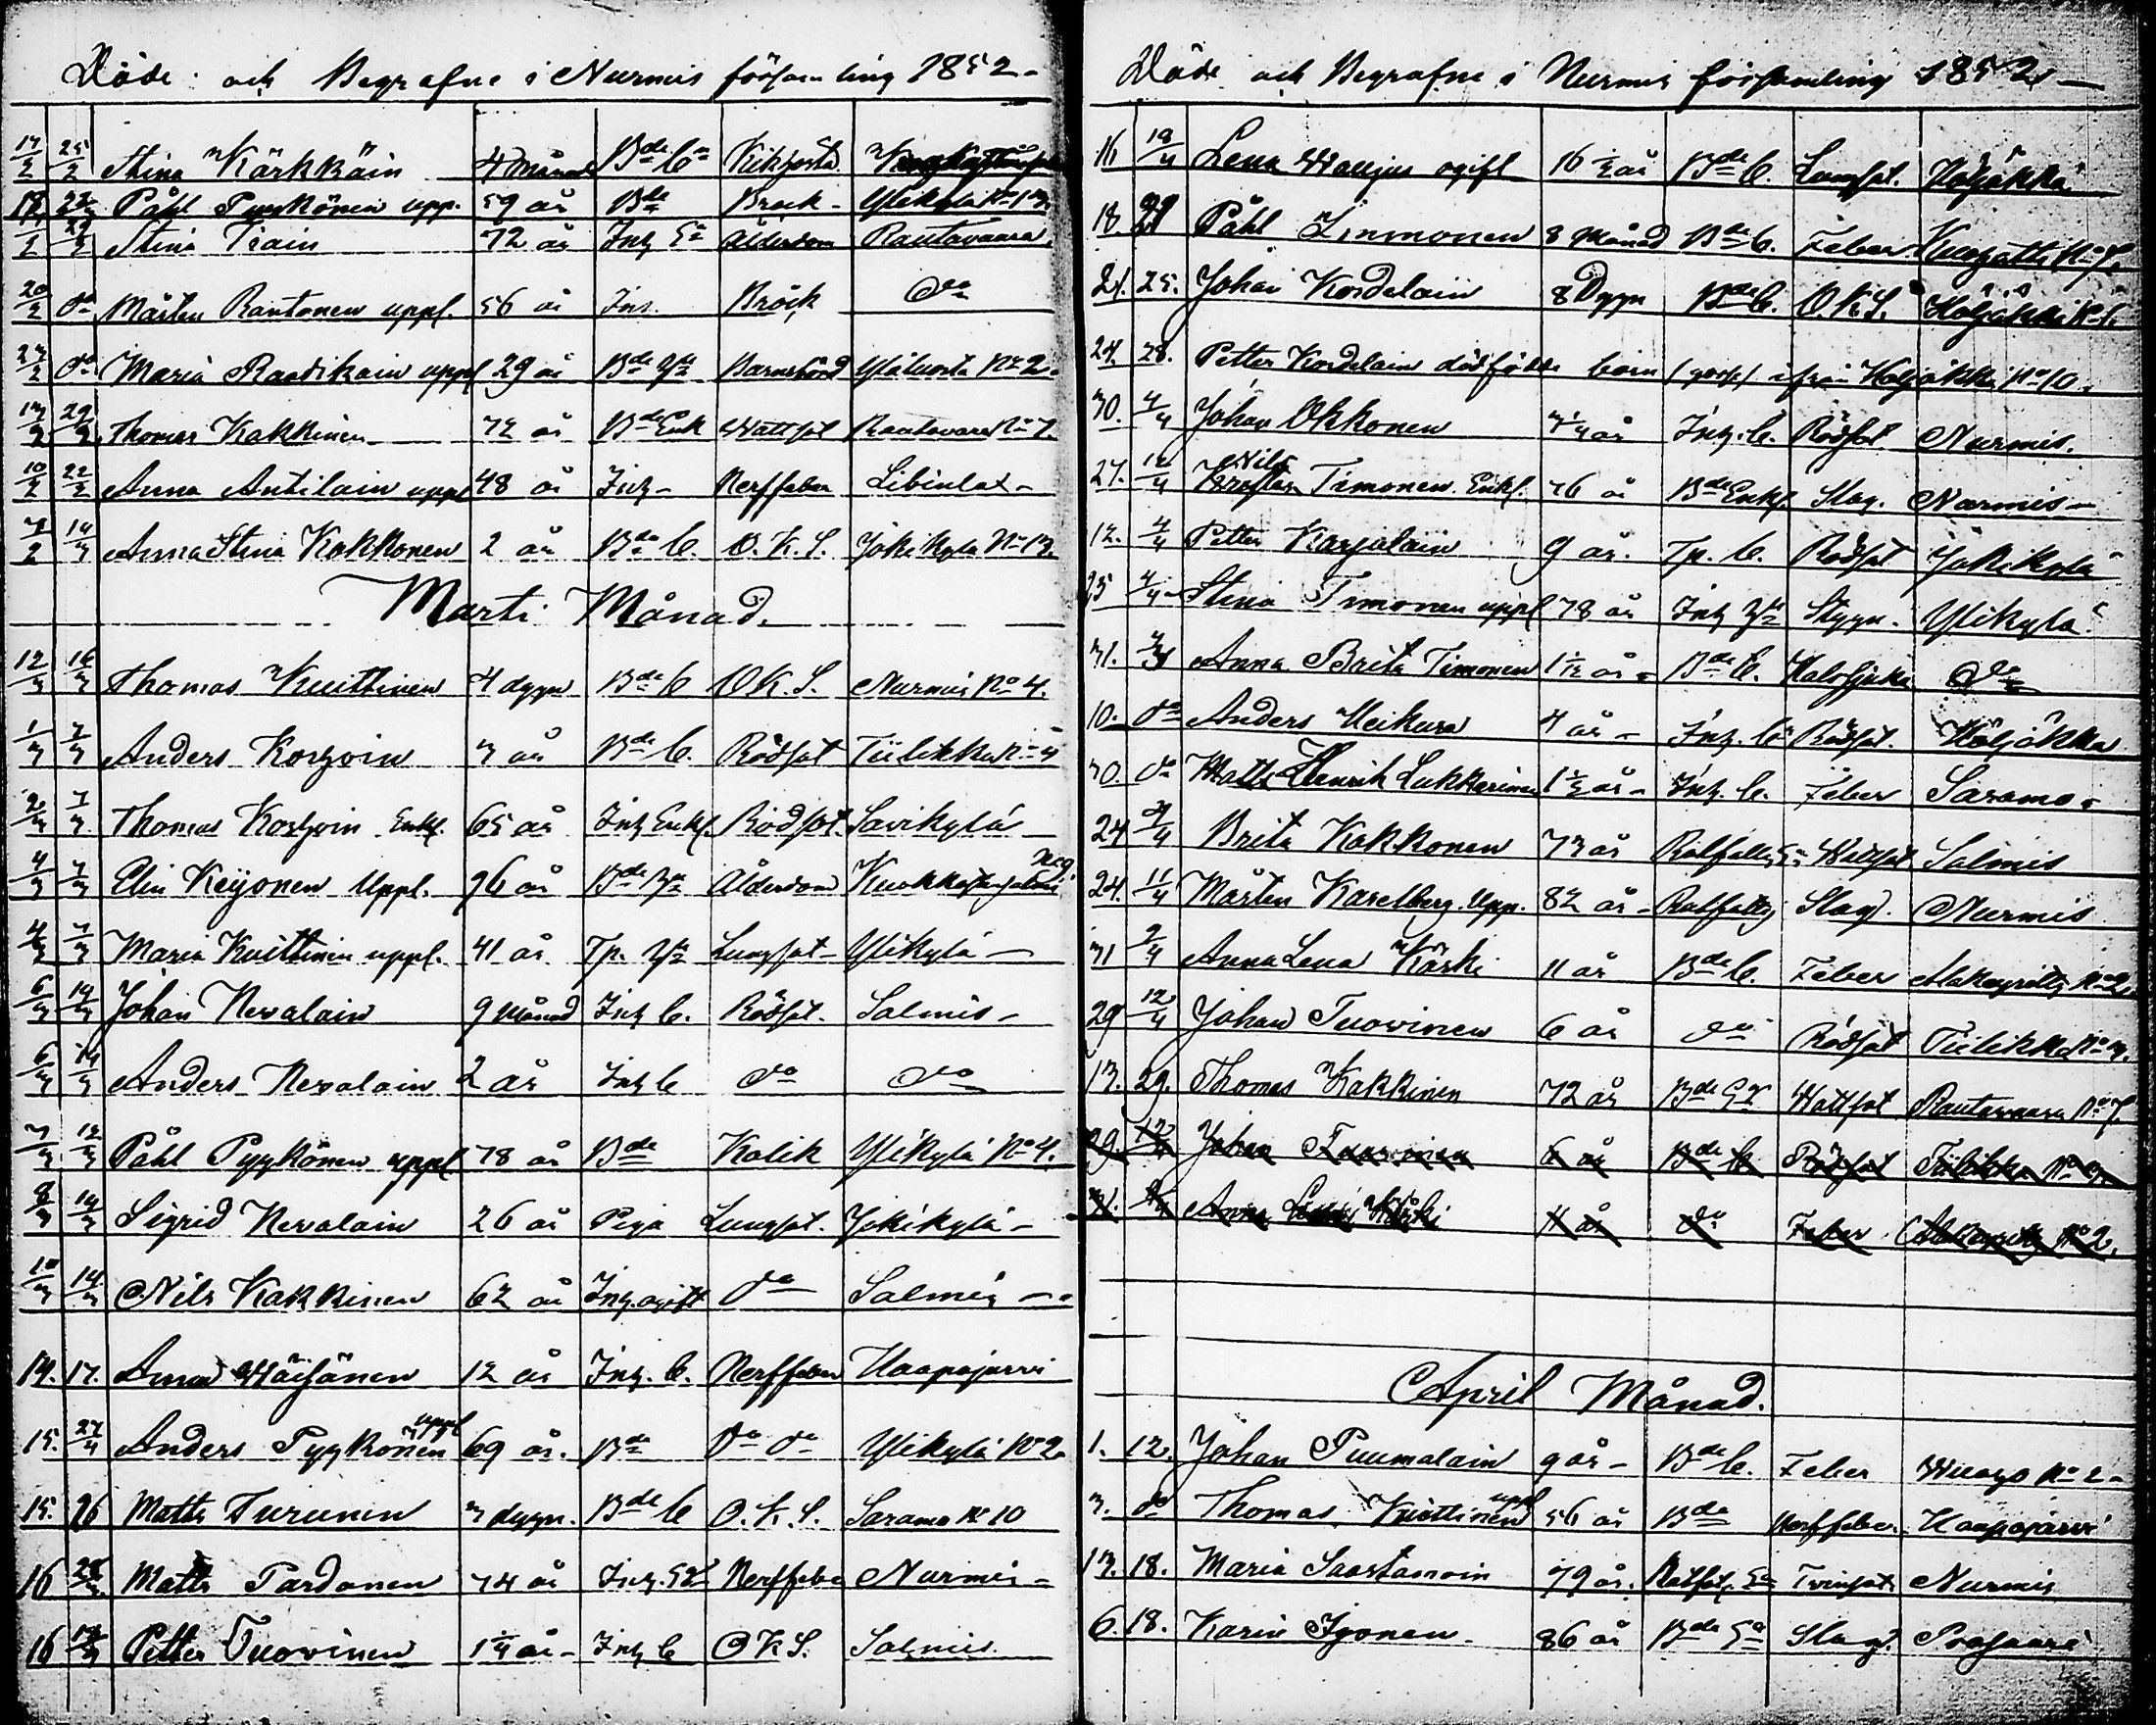 Döde och Begrafne i Nurmis församling 1852
17/2 25/2 Stina Kärkkäin 4 månad Bde b Kikhosta
Påhl Pyykönen upp. 59 år Bde Bråck Ylikylä No 13.
Stina Piain 72 år Inh Ålderdom Rautavaara.
20/2 do Mårten Rautonen uppl. 56 år Inh. Bråck do
27/2 do Maria Raatikain uppl 29 år Bde Barnsbörd No 2.
29/2 Thomas Kakkinen 72 år Bde Enk Wattsot Rautavara No 7.
10/2 22/2 Anna Antilain uppl 48 år Inh Nerffeber Libinlax
7/2 14/3 Anna Stina Kokkonen 2 år Bde b. O. K. S. Jokikylä No 13.
Marti Månad.
12/3 16/3 Thomas Kuittinen 4 dygn Bde b O K. S. Nurmis No 4.
1/3 7/3 Anders Korhoin 3 år Bde b. Rödsot Tiilikka No 4
2/3 7/3 Thomas Korhoin Enkl. 65 år Inh Enkl. Rödsot. Savikylä
4/3 7/3 Elin Keijonen Uppl. 96 år Bde Ålderdom
4/3 7/3 Maria Kuittinen uppl. 41 år Tp. Lungsot Ylikylä
6/3 14/3 Johan Nevalain 9 månad Inh b. Rödsot. Salmis
6/3 14/3 Anders Nevalain 2 år Inh b do do
7/3 12/3 Påhl Pyykönen uppl 78 år Bde Kolik Ylikylä No 4.
8/3 14/3 Sigrid Nevalain 26 år Piga Lungsot. Jokikylä
10/3 14/3 Nils Kakkinen 62 år Inh. ogift do Salmis
14. 17. Anna Wäisänen 12 år Inh. b. Nerffeber Haapajärvi
15. 27/4 Anders Pyykönen uppl 69 år. Bde do do Ylikylä No 2
15. 26 Matts Turunen 3 dygn. Bde b O. K. S. Saramo No 10
16 28/3 Matts Pardanen 74 år Inh. Nerffeber Nurmis
16 Petter Tuovinen 1 1/4 år Inh b O K S. Salmis.
Döde och Begrafne i Nurmis församling 1852
16 18/4 Lena Wallius ogift 16 1/2 år Bde b. Lungsot. Höljäkkä
18. 21 Påhl Linnonen 8 månad Bde b. Feber
21. 25. Johan Kordelain 8 Dygn Bde b. O K. S. Höljäkkä No
24. 28. Petter Kordelain dödfödde barn (goss) ifrån Höljäkkä No 10.
30. 4/4 Johan Okkonen 3/4 år Inh. b. Rödsot Nurmis.
27. 12/4 Nils Timonen Enkl. 76 år Bde Enkl. Slag. Nurmis
12. 4/4 Petter Karjalain 9 år. Tp. b. Rödsot Jokikylä
25 4/4 Stina Timonen uppl 78 år Inh Styng. Ylikylä
31. Anna Brita Timonen 1 1/12 år Bde b. Halssjuka do
10. do Anders Meikura 4 år Inh. b Rödsot. Höljäkkä
30. do Matts Henrik Lukkarinen 1 1/2 år Inh. b. Feber Saramo
24 9/4 Brita Kokkonen 73 år Rotfattig Wattsot Salmis
24. 11/4 Mårten Karelberg Upp. 82 år Rotfattig Slag. Nurmis
31 9/4 Anna Lena Koski 11 år Bde b. Feber No 2.
29 12/4 Johan Tuovinen 6 år do Rödsot Tiilikka No 3.
13. 29. Thomas Kakkinen 72 år Bde Wattsot Rautavaara No 7.
29. 12/4 Johan Tuovinen 6 år Bde b Rödsot Tiilikka No 3
31. Anna Lena Koski 11 år do Feber No 2.
April Månad.
1. 12. Johan Puumalain 9 år Bde b. Feber Wuogo No 2
3. do Thomas Kuittinen uppl 56 år Bde Nerffeber Haapajärvi
13. 18. Maria Saastamoin 79 år. Rotfat. Tvinsot Nurmis
6. 18. Karin Igonen 86 år Bde Slag.